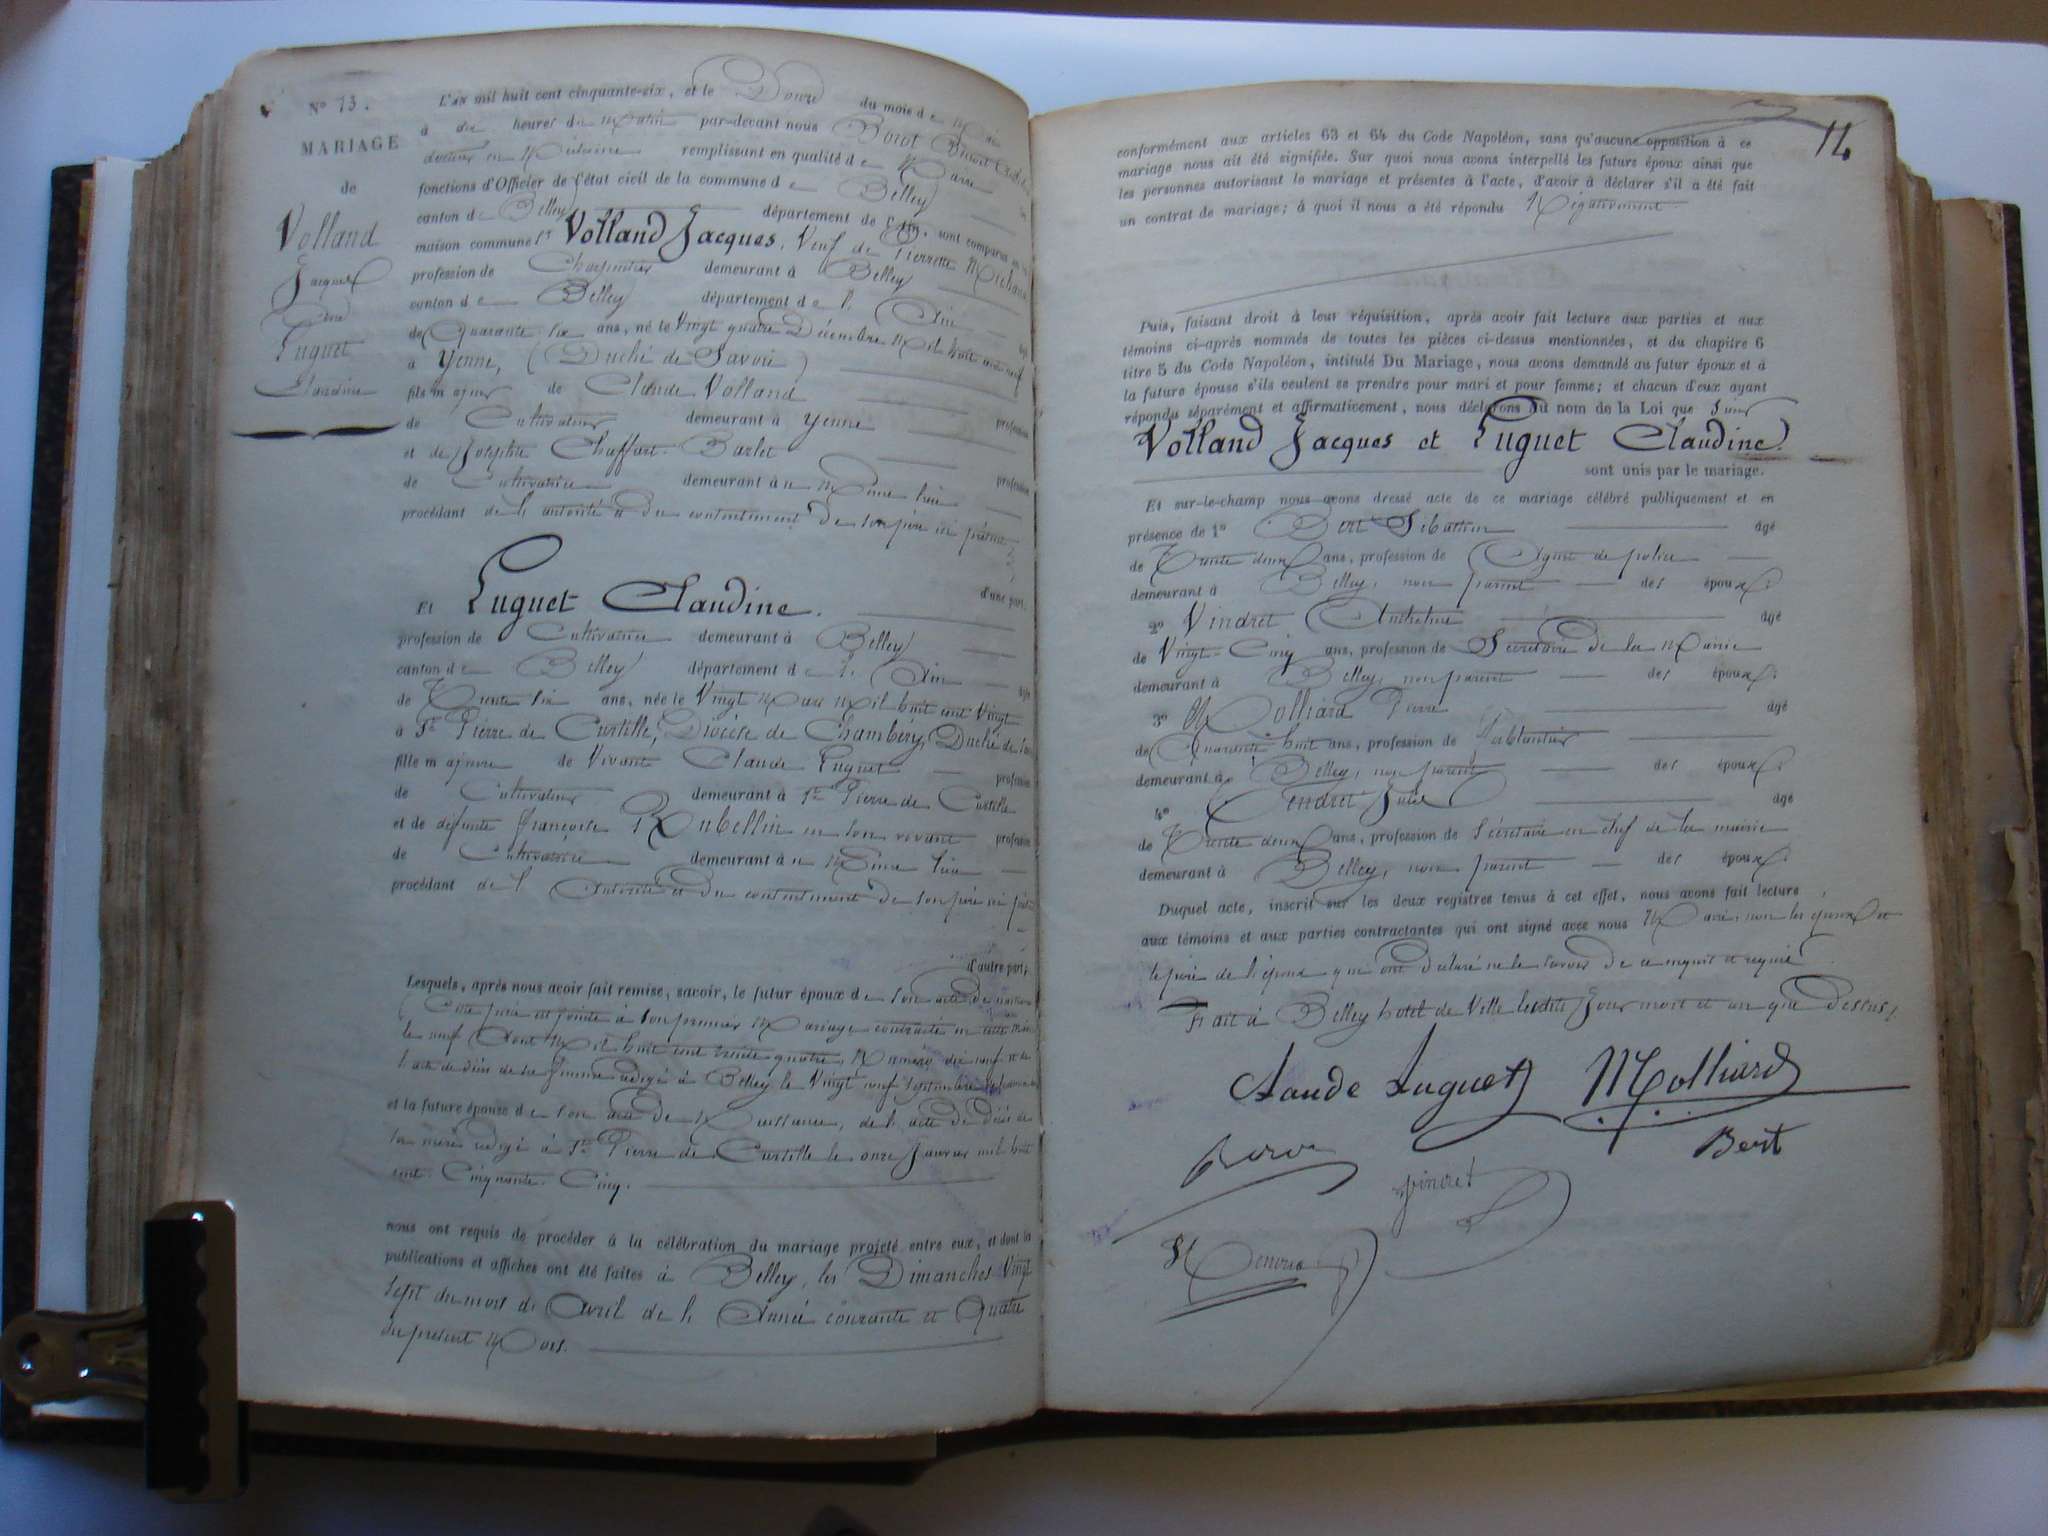 N° 13.
MARIAGE
de
Volland
Jacques
Luguet
Claudine
L'an mil huit cent cinquante-six, et le Douze du mois de Mai
à dix heures du Matin par-devant nous Borot
docteur en Médecine remplissant en qualité de Maire
fonctions d'Officier de l'état civil de la commune de Belley
canton de Belley département de l'Ain, sont comparus en la
maison commune Sr Volland Jacques, Veuf de Pierrette Michaud
profession de Charpentier demeurant à Belley
canton de Belley département de l'Ain âgé
de Quarante-six ans, né le Vingt quatre Décembre Mil huit cent neuf
à Yenne, (Duché de Savoie)
fils majeur de Claude Volland profession
de Cultivateur demeurant à Yenne
et de Josephte Chaffart-Barlet profession
de Cultivatrice demeurant au Même lieu
procédant de l'autorité et du contentement de son père ici présent
d'une part.
Et Luguet Claudine.
profession de Cultivatrice demeurant à Belley
canton de Belley département de l'Ain âgée
de Trente six ans, née le Vingt Mars Mil huit cent Vingt
à St Pierre de Curtille, Diocèse de Chambéry, Duché de Savoie
fille majeure de Vivant Claude Luguet profession
de Cultivateur demeurant à St Pierre de Curtille
et de défunte Françoise Rubellin en son vivant profession
de Cultivatrice demeurant au Même lieu
procédant de l'Autorité et du contentement de son père ici présent
d'autre part;
Lesquels, après nous avoir fait remise, savoir, le futur époux de son acte de naissance
(Cette pièce est jointe à son premier Mariage contracté en cette Mairie
le neuf Août Mil huit cent trente quatre, Numéro dix neuf et de
l'acte de décès de sa femme rédigé à Belley le Vingt neuf Septembre
et la future épouse de son acte de Naissance, de l'acte de Décès de
sa mère rédigé à St Pierre de Curtille le onze Janvier mil huit
cent Cinquante Cinq.
nous ont requis de procéder à la célébration du mariage projeté entre eux, et dont la
publications et affiches ont été faites à Belley, les Dimanches Vingt
Sept du mois de Avril de l'Année courante et Quatre
du présent Mois.
14
conformément aux articles 63 et 64 du Code Napoléon, sans qu'aucune opposition à ce
mariage nous ait été signifiée. Sur quoi nous avons interpellé les futurs époux ainsi que
les personnes autorisant le mariage et présentes à l'acte, d'avoir à déclarer s'il a été fait
un contrat de mariage; à quoi il nous a été répondu Négativement
Puis, faisant droit à leur réquisition, après avoir fait lecture aux parties et aux
témoins ci-après nommés de toutes les pièces ci-dessus mentionnées, et du chapitre 6
titre 5 du Code Napoléon, intitulé Du Mariage, nous avons demandé au futur époux et à
la future épouse s'ils veulent se prendre pour mari et pour femme; et chacun d'eux ayant
répondu séparément et affirmativement, nous déclarons au nom de la Loi que
Volland Jacques et Luguet Claudine
sont unis par le mariage.
Et sur-le-champ nous avons dressé acte de ce mariage célébré publiquement et en
présence de 1° Bert Sébastien âgé
de Trente deux ans, profession de Agent de police
demeurant à Belley, non parent des époux
2° Vindret Anthelme âgé
de Vingt-Cinq ans, profession de Secrétaire de la Mairie
demeurant à Belley, non parent des époux
3° Molliard Pierre âgé
de Quarante-huit ans, profession de Ferblantier
demeurant à Belley, non parent des époux
4° Gendret Jules âgé
de Trente deux ans, profession de Sécrétaire en chef de la mairie
demeurant à Belley, non parent des époux
Duquel acte, inscrit sur les deux registres tenus à cet effet, nous avons fait lecture
aux témoins et aux parties contractantes qui ont signé avec nous Maire, non les époux et
le père de l'époux qui ont déclaré ne le savoir de ce enquis et requis
Fait à Belley hotel de Ville lesdits Jour mois et an que dessus,
Claude Luguet Molliard
Borot Bert
Vindret